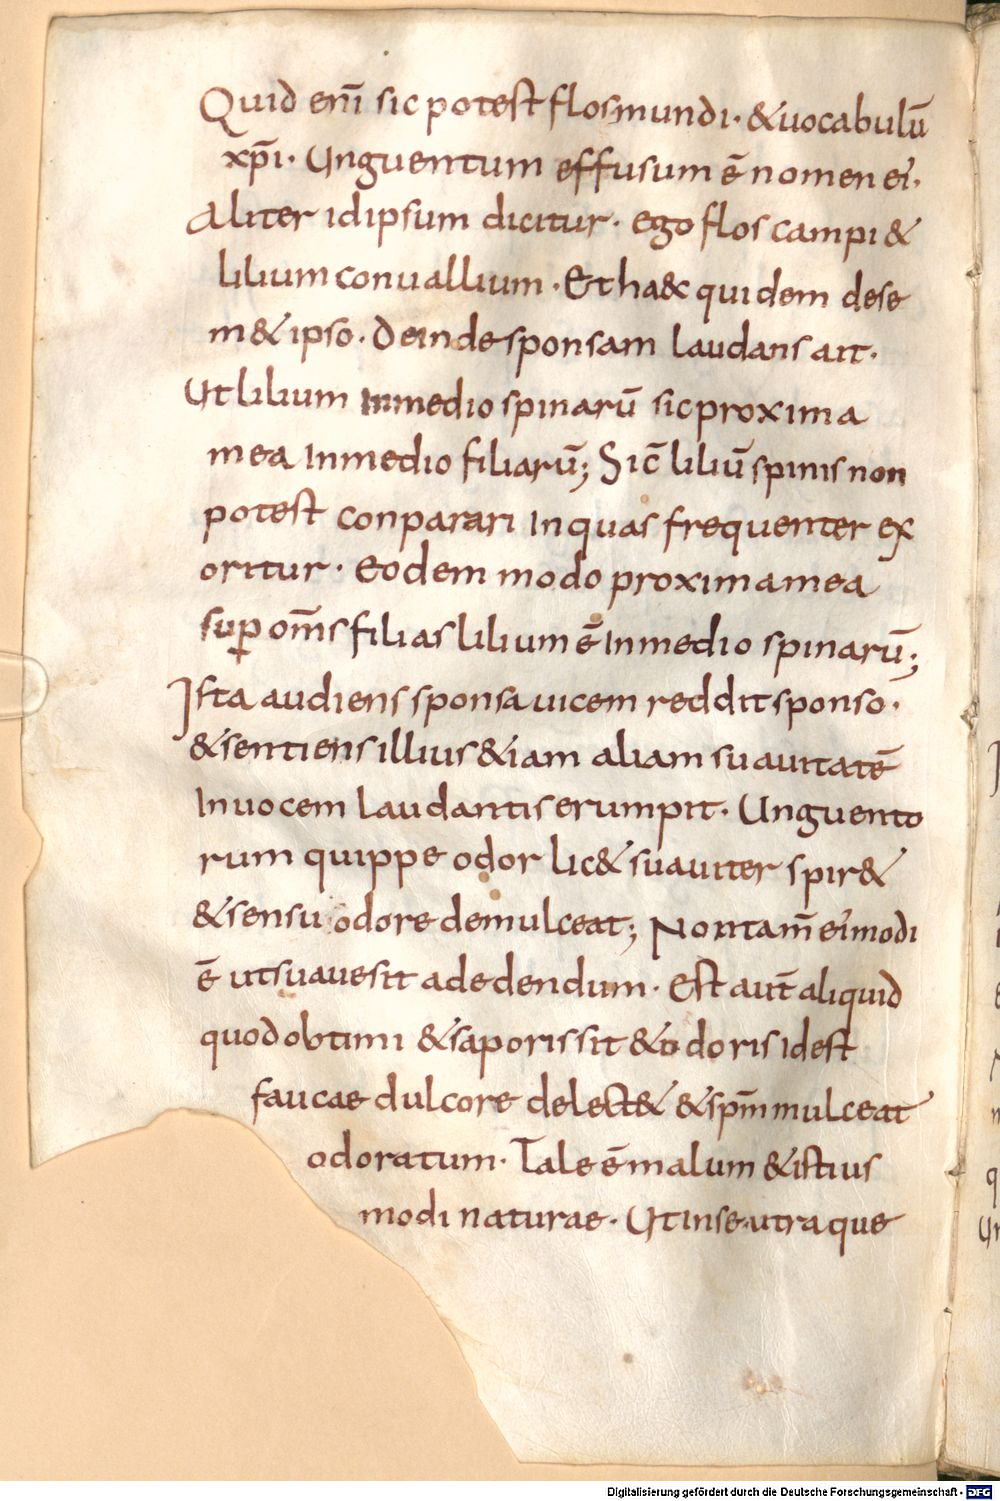 Quid enī sic potest flos mundi· & uocabulū
xp̄i· Unguentum effusum ē nomen ei·
Aliter idipsum dicitur· ego flos campi &
lilium conuallium· Et haec quidem dese
m&ipso· Deinde sponsam laudans ait·
Ut lilium Inmedio spinarū sic proxima
mea Inmedio filiarū; Sic̄ liliū spinis non
potest conparari Inquas frequenter ex
oritur· Eodem modo proxima mea
suꝑ om̄s filias lilium ē Inmedio spinarū;
Ista audiens sponsa uicem reddit sponso·
& sentiens illius & iam aliam suauitatē
Inuocem laudantis erumpit· Unguento
rum quippe odor lic& suauiter spir&
& sensu odore demulceat; Non tam̄ eimodi
ē ut suaue sit adedendum· Est aut̄ aliquid
quod obtimi & saporis sit & odoris idest
faucae dulcore delect& & spm̄ mulceat
odoratum· Tale ē malum & istius
modi naturae· Ut Inse utraque
Digitalisierung gefördert durch die Deutsche Forschungsgemeinschaft - DFG